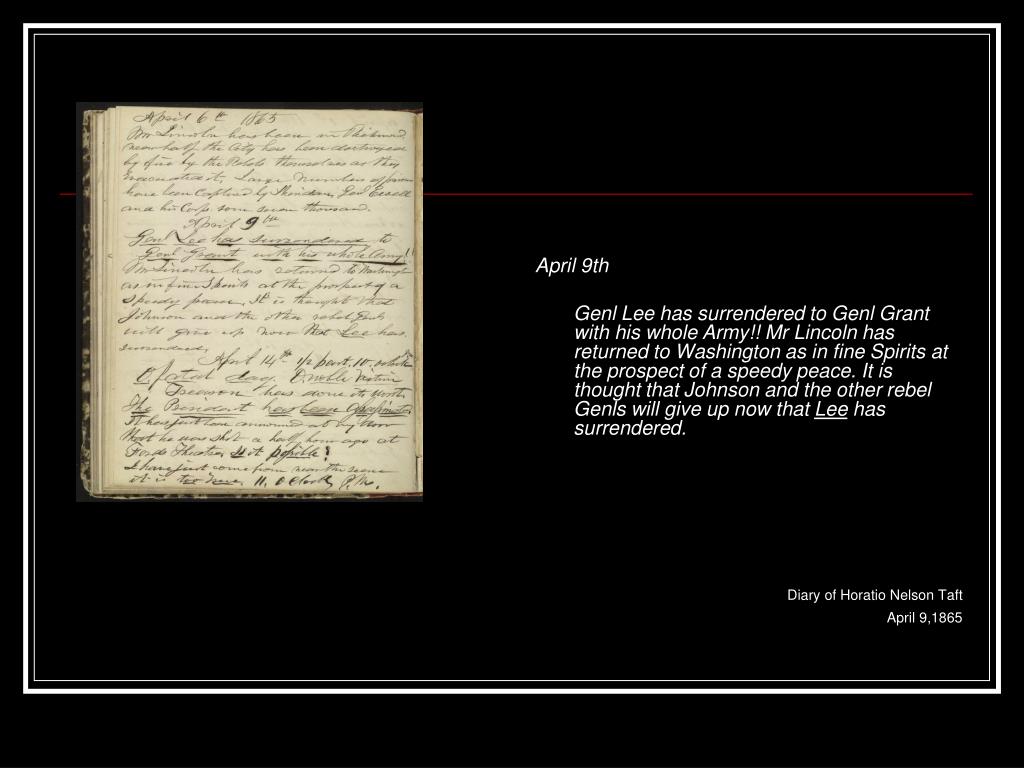 April 6th 1865
Mr Lincoln has been in Richmond
near half the City has been destroyed
by fire by the Rebels themselves as they
evacuated it. Large numbers of prisoners
have been captured by Sheridan, Genl Ewell
and his Corps some seven thousand.
April 9th
Genl Lee has surrendered to
Genl Grant with his whole Army!!
Mr Lincoln has returned to Washington
as in fine Spirits at the prospect of a
speedy peace. It is thought that
Johnson and the other rebel Genls
will give up now that Lee has
surrendered.
April 14th 1/2 past 10 o'clock
A fatal day. Noble
has done its worst
The President has been Assassinated
It has just been announced at my door
that he was shot a half hour ago at
Fords Theatre. Is it possible!
I have just come from near the scene
it is too true. 11 o'Clock P.M.
April 9th
Genl Lee has surrendered to Genl Grant
with his whole Army!! Mr Lincoln has
returned to Washington as in fine Spirits at
the prospect of a speedy peace. It is
thought that Johnson and the other rebel
Genls will give up now that Lee has
surrendered.
Diary of Horatio Nelson Taft
April 9,1865